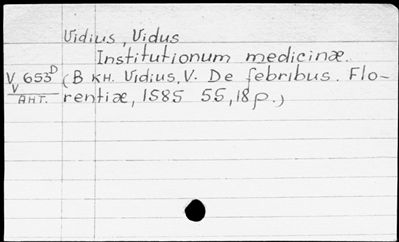 Vidius, Vidus
Institutionum medicinæ.
V 653ᴰ (В кн. Vidius, V. De febribus. Flo-
V
АНТ. rentiæ, 1585 55, 18 p.)